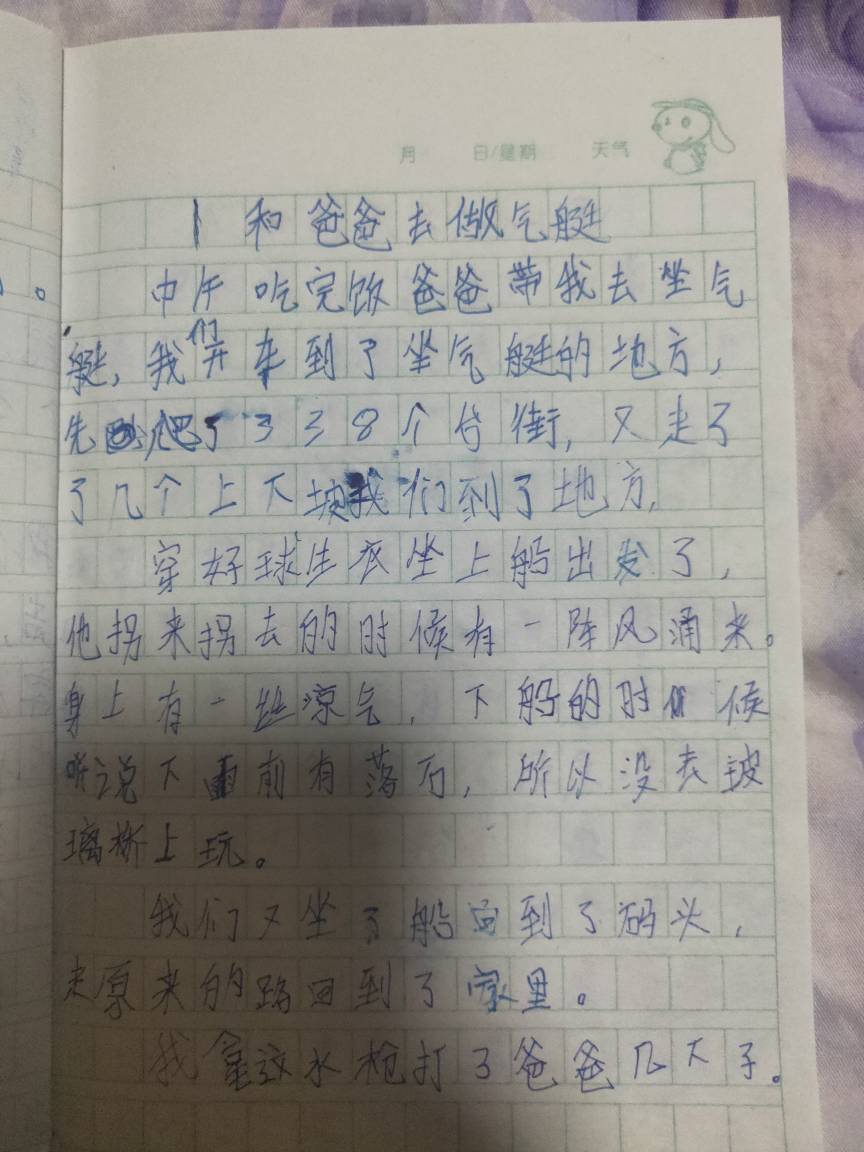 月 日/星期 天气
和爸爸去做气艇
中午吃完饭爸爸带我去坐气
艇，我们开车到了坐气艇的地方，
先爬了338个台街，又走了
了几个上下坡我们到了地方，
穿好球生衣坐上船出发了，
他拐来拐去的时候有一阵风涌来。
身上有一丝凉气，下船的时候
听说下面前有落石，所以没去玻
璃桥上玩。
我们又坐了船回到了码头，
走原来的路回到了家里。
我拿这水枪打了爸爸几下子。